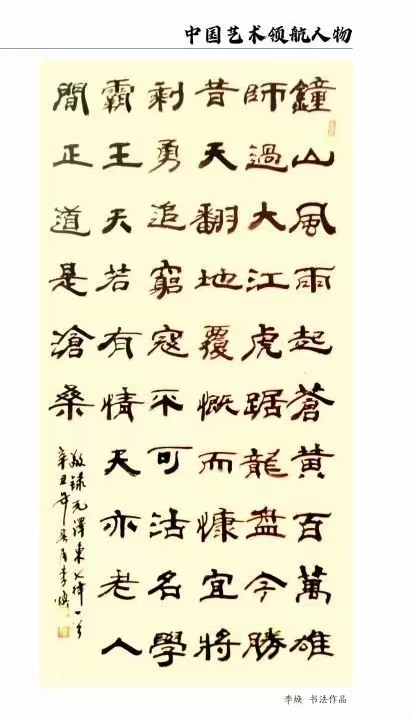 中国艺术领航人物
鐘山風雨起蒼黃百萬雄
師過大江虎踞龍盤今勝
昔天翻地覆慨而慷宜將
剩勇追窮寇不可沽名學
霸王天若有情天亦老人
間正道是滄桑
敬録毛澤東七律一首
辛丑年月李焕
李焕 书法作品